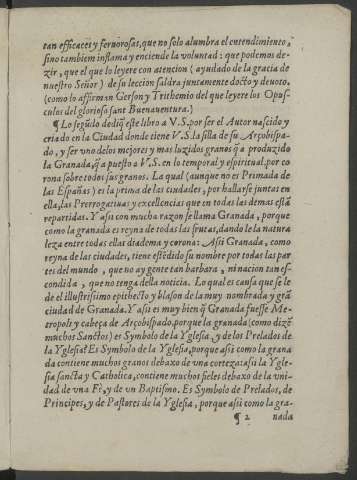 tan efficaces y fervorosas, que no solo alumbra el entendimiento,
sino tambiem inflama y enciende la voluntad: que podemos de-
zir, que el que lo leyere con atencion (ayudado de la gracia de
nuestro Señor) de su leccion saldra juntamente docto y devoto.
(como lo affirman Gerson y Trithemio del que leyere los Opus-
culos del glorioso sant Buenaventura.)
¶ Lo segūdo dediq̄ este libro a V.S. por ser el Autor nascido y
criado en la Ciudad donde tiene V.S. la silla de su Arçobispa-
do, y ser vno de los mejores y mas luzidos granos q̄ a produzido
la Granada, q̄ a puesto a V.S. en lo temporal y espiritual por co
rona sobre todos sus granos. La qual (aunque no es Primada de
las Españas) es la prima de las ciudades, por hallarse juntas en
ella, las Prerrogativas y excellencias que en todas las demas està
repartidas. Y assi con mucha razon se llama Granada, porque
como la granada es reyna de todas las frutas, dando le la natura
leza entre todas ellas diadema y corona: Assi Granada, como
reyna de las ciudades, tiene estēdido su nombre por todas las par
tes del mundo, que no ay gente tan barbara, ni nacion tan es-
condida, que no tenga della noticia. Lo qual es causa que se le
de el illustrissimo epithecto y blason de la muy nombrada y grā
ciudad de Granada. Y assi es muy bien q̄ Granada fuesse Me-
tropoly y cabeça de Arçobispado, porque la granada (como dizē
muchos Sanctos) es Symbolo de la Yglesia, y de los Prelados de
la Yglesia? Es Symbolo de la Yglesia, porque assi como la grana
da contiene muchos granos debaxo de vna corteza: assi la Ygle-
sia sancta y Catholica, contiene muchos fieles debaxo de la vni-
dad de vna Fè, y de vn Baptismo. Es Symbolo de Prelados, de
Principes, y de Pastores de la Yglesia, porque assi como la gra-
¶ 2 nada